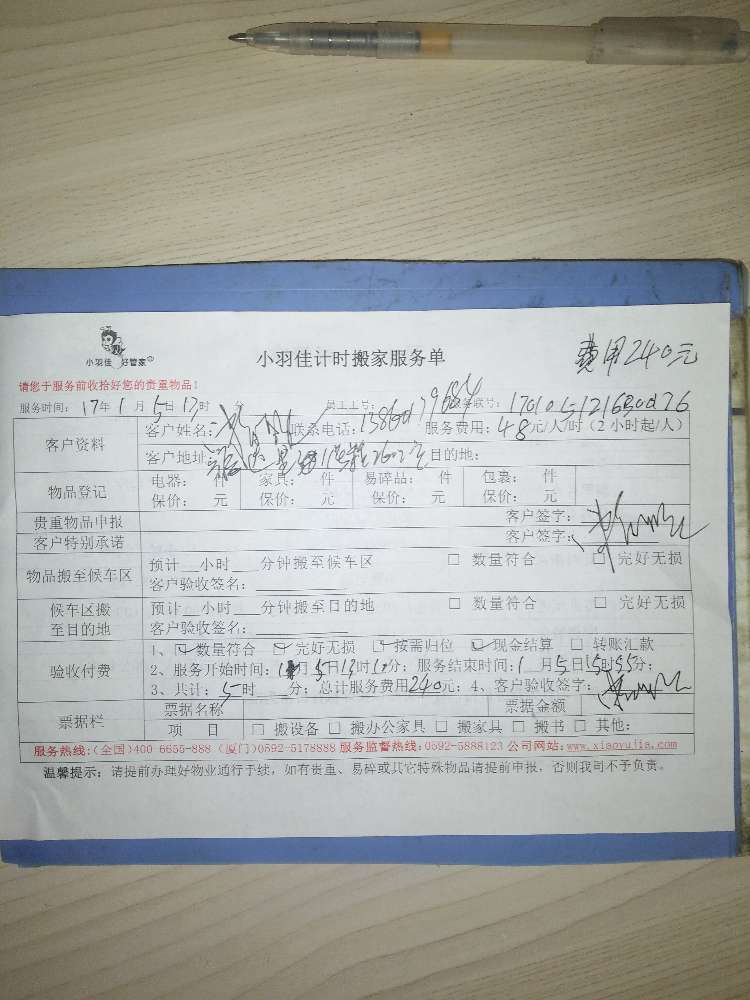 小羽佳 好管家
小羽佳计时搬家服务单
费用240元
请您于服务前收拾好您的贵重物品！
服务时间：17年1月5日17时 分 员工工号： 服务联号：
客户资料 客户姓名： 联系电话： 服务费用：48元/人/时（2小时起/人）
客户地址： 目的地：
物品登记 电器： 件 家具： 件 易碎品： 件 包裹： 件
保价： 元 保价： 元 保价： 元 保价： 元
贵重物品申报 客户签字：
客户特别承诺 客户签字：
物品搬至候车区 预计 小时 分钟搬至候车区 □ 数量符合 □ 完好无损
客户验收签名：
候车区搬至目的地 预计 小时 分钟搬至目的地 □ 数量符合 □ 完好无损
客户验收签名：
验收付费 1、☑ 数量符合 ☑ 完好无损 ☑ 按需归位 ☑ 现金结算 □ 转账汇款
2、服务开始时间： 月5日13时10分；服务结束时间：1月5日15时55分；
3、共计：5时 分；总计服务费用240元；4、客户验收签字：
票据栏 票据名称 票据金额
项 目 □ 搬设备 □ 搬办公家具 □ 搬家具 □ 搬书 □ 其他：
服务热线:(全国)400 6655-888 (厦门)0592-5178888 服务监督热线:0592-5888123 公司网站:www.xiaoyujia.com
温馨提示：请提前办理好物业通行手续，如有贵重、易碎或其它特殊物品请提前申报，否则我司不予负责。